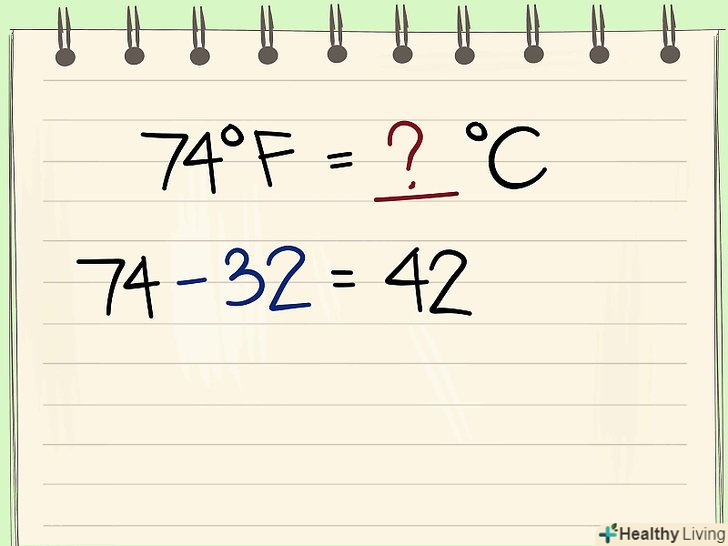 74°F = ? °C
74 - 32 = 42
Healthy Living